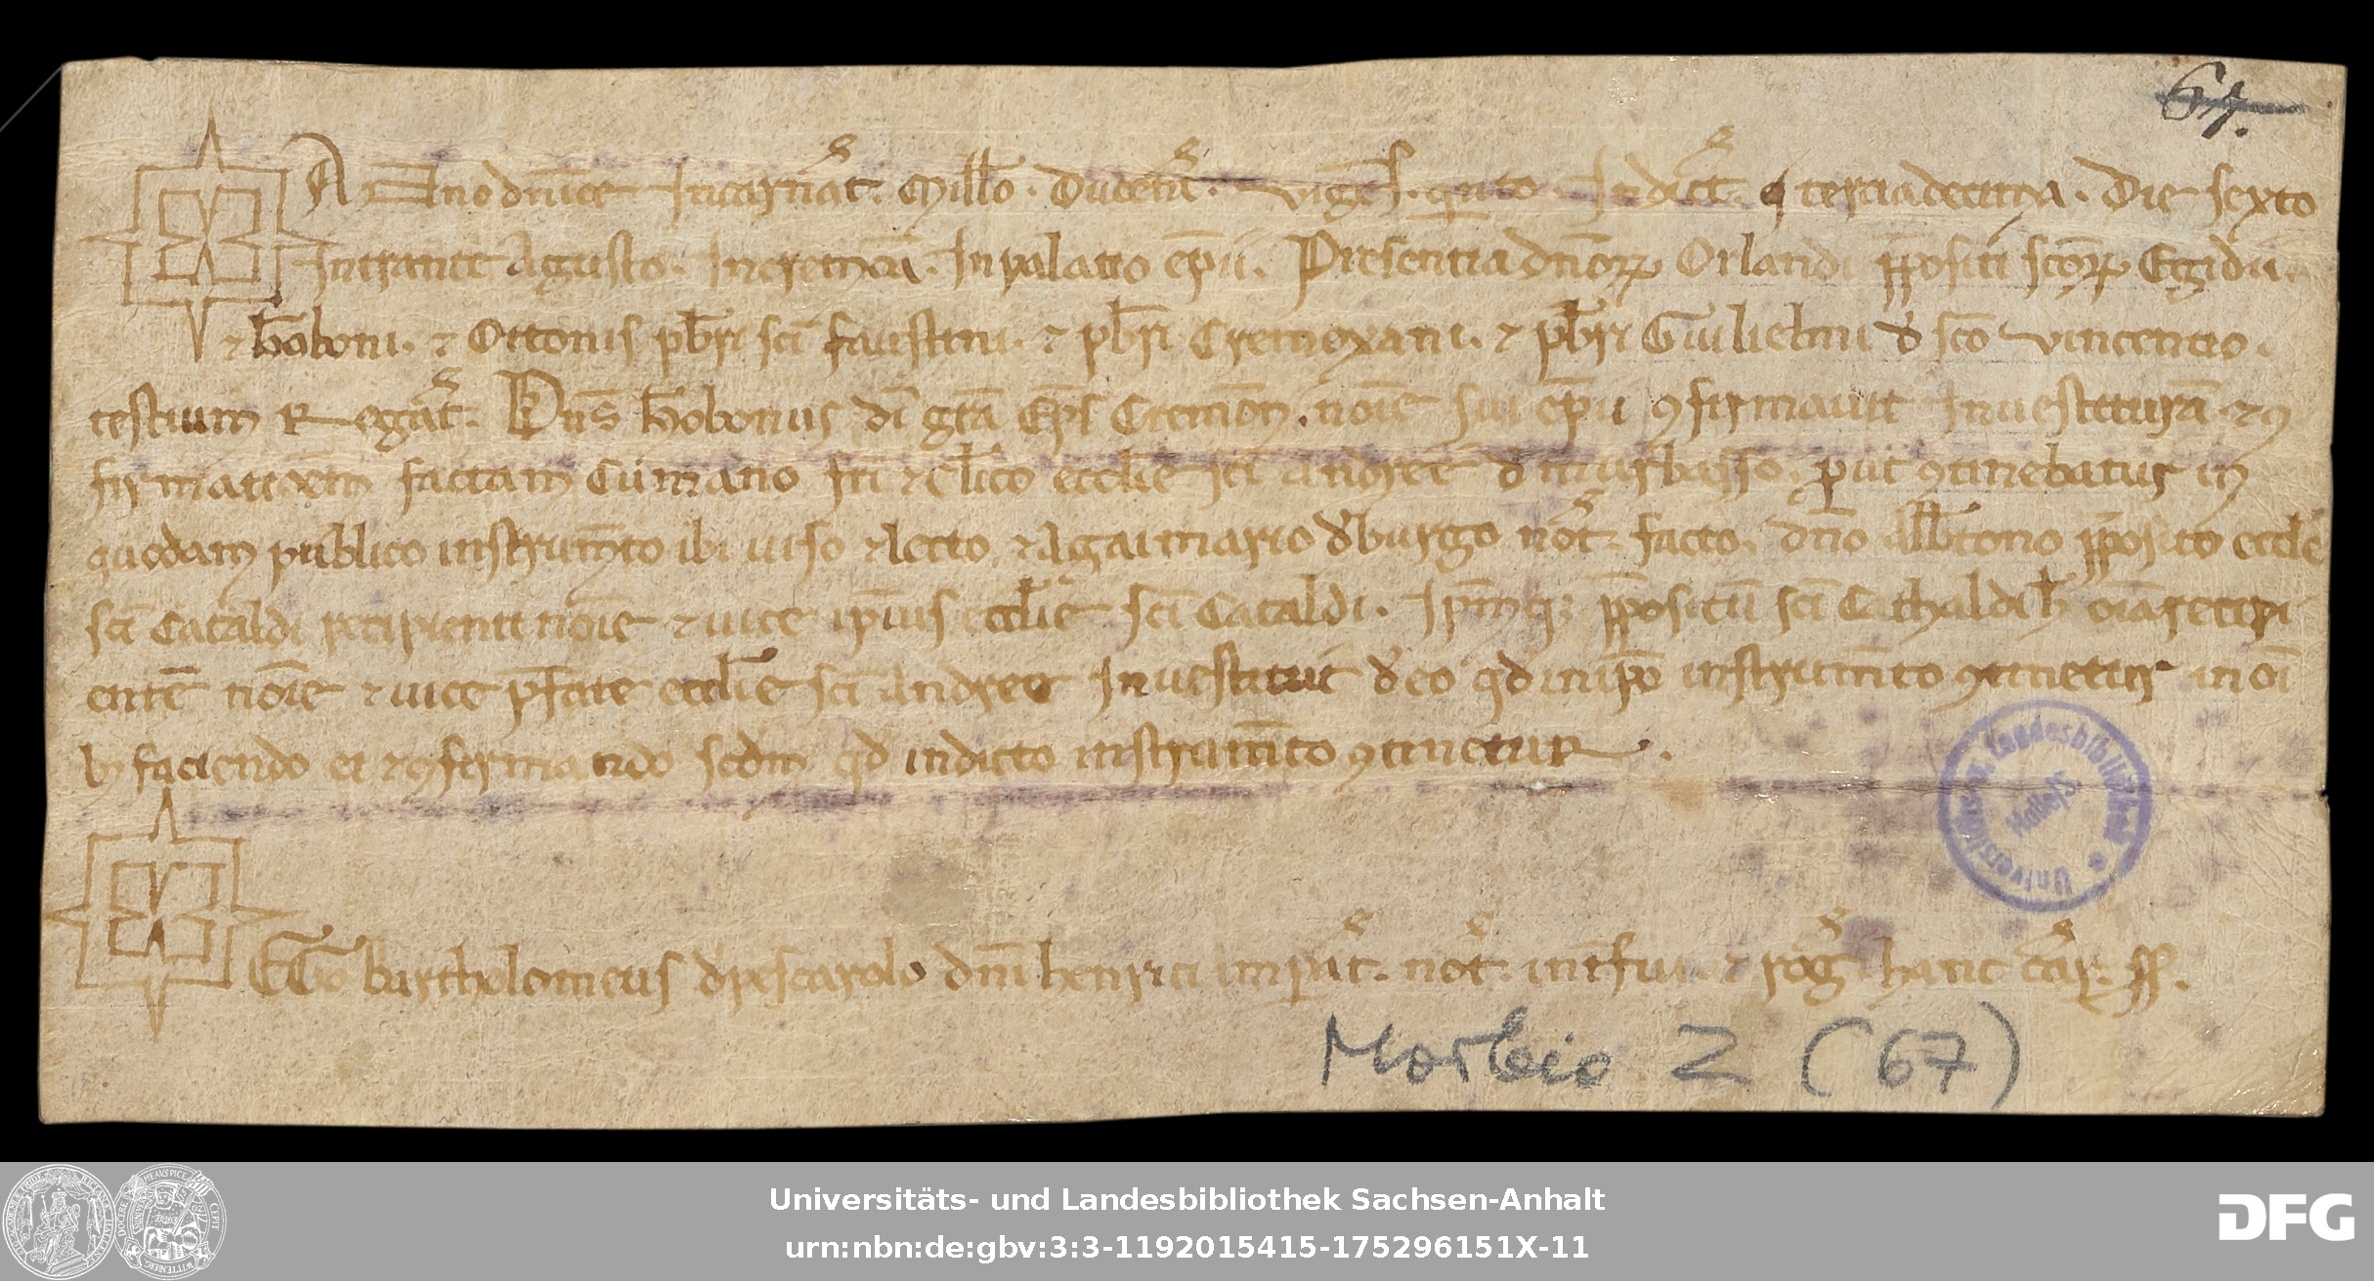 67.
Anno dn̄ice Incarnat̄. Mill̄o. Ducent̄. viges̄. qu̍nto. Indict̄. tertiadecima. Die sexto
Intrante Agusto. Incremon̄a. Inpalatio ep̄ii. Presentia dn̄oꝝ Orlandi p̄positi scōꝝ Egidii.
⁊ h̄oboni. ⁊ Ottonis pb̄ri sc̄i faustini. ⁊ pb̄ri Cremoxani. ⁊ pb̄ri Guilielmi d̄ sc̄o vincentio.
testium Rogat̄. Dn̄s h̄obonus di̅ gr̄a Ep̄s Cremon̄. noīe sui ep̄ii ꝯfirmauit Inuestiturā ⁊ ꝯ
firmationem̄ factam Cūmano fr̄i ⁊ cl̄ico eccl̄ie sc̄i andree d̄ murbasso. ꝓut ꝯtinebatur in
quodam publico instrum̄to ibi uiso ⁊ lecto ⁊ Agaimario d̄ burgo not̄. facto. dn̄o alb̄tono p̄posito eccl̄e
sc̄i Cataldi recipienti noīe ⁊ uice ip̄ius eccl̄ie sc̄i Cataldi. Ip̄mq; p̄positū sc̄i Cathaldi h̄ oīa recipi
entē noīe ⁊ uice p̄fate eccl̄ie sc̄i Andree Inuestiuit d̄ eo qd̄ inip̄o instrum̄to ꝯtinetur in oī
bꝫ faciendo ei ⁊ ꝯfirmando scd̄m qd̄ indicto instrum̄to ꝯtinetur.
EGo bartholomeus d̄ pescarolo dn̄i henrici imp̄at̄. not̄. int̄fui ⁊ roḡ. hanc car̄. ss.
Morbio Z (67)
Universitäts- u. Landesbibliothek Halle/S.
Universitäts- und Landesbibliothek Sachsen-Anhalt
urn:nbn:de:gbv:3:3-1192015415-175296151X-11
DFG